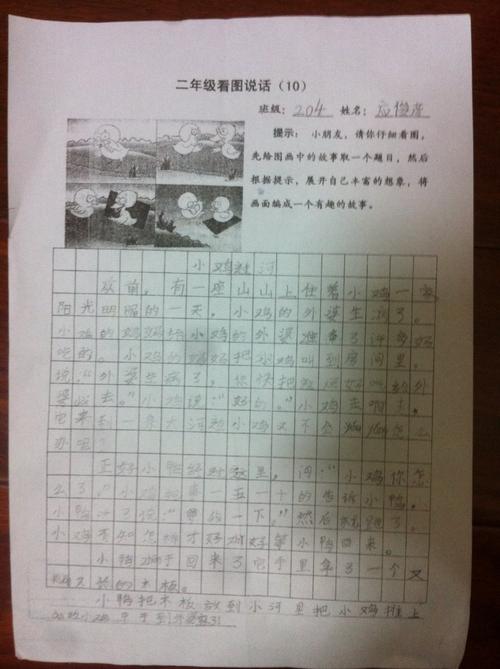 二年级看图说话（10）
班级：204 姓名：应
提示：小朋友，请你仔细看图，
先给图画中的故事取一个题目，然后
根据提示，展开自己丰富的想象，将
画面编成一个有趣的故事。
小鸡过河
从前，有一座山山上住着小鸡一家
阳光明媚的一天，小鸡的外婆生病了。
小鸡的妈妈给小鸡的外婆准备了许多好
吃的。小鸡的妈妈把小鸡叫到房间里，
说：“外婆生病了，你快把这些好吃给外
婆送去。”小鸡说：“好的。”小鸡去啊去，
它来到一条大河边小鸡又不会 怎么
办呢？
正好小鸭经过这里，问：“小鸡你怎
么了。”小鸡 一五一十的告诉小鸭，
小鸭 说：“等的一下。”然后就跑了。
小鸡不知怎样才好 等小鸭回来。
小鸭终于回来了它手里拿了一个又
又长的木板。
小鸭把木板放到小河里把小鸡推上
小鸡 到外婆家了